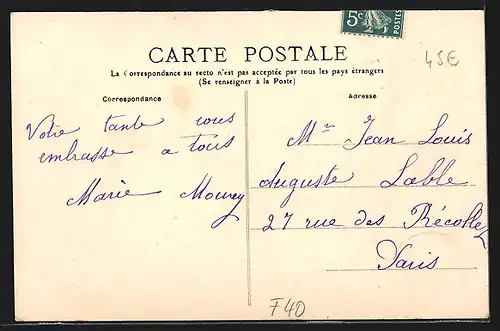 5c
POSTES
CARTE POSTALE
45€
La Correspondance au recto n'est pas acceptée par tous les pays étrangers
(Se renseigner à la Poste)
Correspondance
Votre tante vous
embrasse a tous
Marie Mourey
Adresse
Mr Jean Louis
Auguste Lable
27 rue des Récollets
Paris
F40